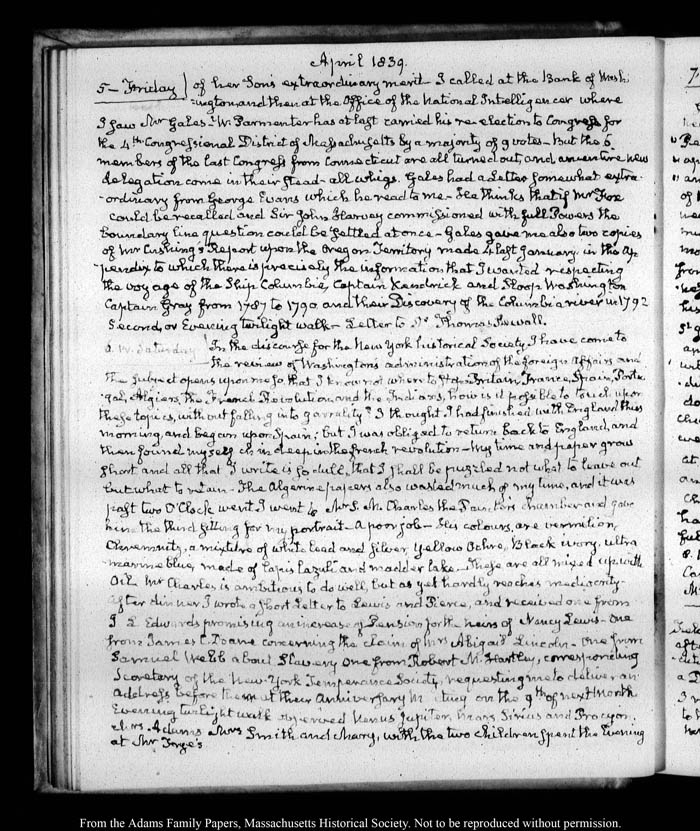 April 1839.
5 - Friday of her Son's extraordinary merit - I called at the Bank of Wash-
-ington and then at the Office of the National Intelligencer where
I saw Mr Gales - W. Parmenter has at last carried his re-election to Congress for
the 4th Congressional District of Massachusetts by a majority of 9 votes - But the 6
members of the last Congress from Connecticut are all turned out, and an entire new
delegation come in their stead - all whigs. Gales had a Letter somewhat extra-
-ordinary from George Evans which he read to me - He thinks that if Mr Fox
could be recalled and Sir John Harvey commissioned with full Powers the
boundary line question could be settled at once - Gales gave me also two copies
of Mr Cushing's Report upon the Oregon Territory made 4 last January. in the Ap-
pendix to which there is precisely the information that I wanted respecting
the voyage of the Ship Columbia, Captain Kendrick and Sloop Washington
Captain Gray from 1787 to 1790 and their Discovery of the Columbia river in 1792
Second, or Evening twilight walk - Letter to Dr Thomas Sewall.
6. IV. Saturday In the discourse for the New York historical Society, I have come to
the review of Washington's administration of the foreign Affairs and
the subject opens upon me so that I know not where to stop. Britain, France, Spain, Portu-
gal, Algiers, the French Revolution, and the Indians, how is it possible to touch upon
these topics, without falling into garrulity? I thought I had finished with England this
morning, and began upon Spain; but I was obliged to return back to England, and
then found myself in deep in the french revolution - My time and paper grow
short and all that I write is so dull, that I shall be puzzled not what to leave out
but what to retain - The Algerine papers also wasted much of my time, and it was
past two O'Clock went I went to Mr S. M. Charles the Painter's chamber and gave
him the third sitting for my portrait - A poor job - His colours, are vermilion,
Chremnitz, a mixture of white lead and silver, Yellow Ochre, Black ivory, ultra
-marine blue, made of lapis lazuli and madder lake - These are all mixed up with
Oil. Mr Charles is ambitious to do well, but as yet hardly reaches mediocrity -
After dinner I wrote a short Letter to Lewis and Pierce, and received one from
J L Edwards promising an increase of Pension for the heirs of Nancy Lewis - One
from James C. Doane concerning the claim of Mrs Abigail Lincoln - One from
Samuel Webb about Slavery One from Robert M. Hartley, corresponding
Secretary of the New-York Temperance Society, requesting me to deliver an
Address before them at their Anniversary Meeting on the 9th of next Month.
Evening twilight walk observed Venus Jupiter, Mars Sirius and Procyon.
Mrs. Adams Mrs Smith and Mary, with the two children spent the Evening
at Mr Forge's
From the Adams Family Papers, Massachusetts Historical Society. Not to be reproduced without permission.